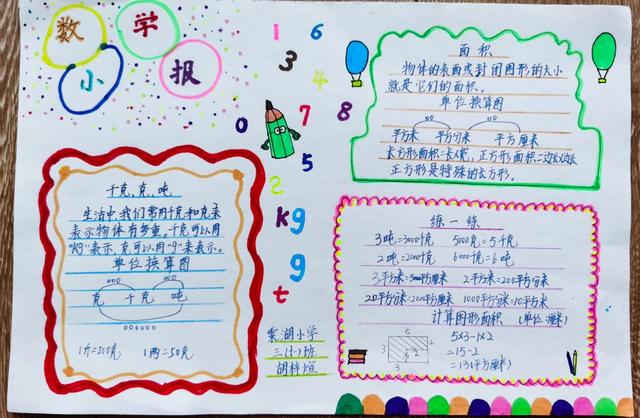 数学
小报
1 6
3 4
7 8
0
5
2
kg
g
g
t
面积
物体的表面或封闭图形的大小
就是它们的面积。
单位换算图
平方米 平方分米 平方厘米
长方形面积=长x宽,正方形面积=边长x边长
正方形是特殊的长方形。
千克、克、吨
生活中,我们常用千克和克来
表示物体有多重。千克可以用
"Kg"表示,克可以用"g"来表示。
单位换算图
克 千克 吨
1斤=500克 1两=50克
练一练
3吨=3000千克 5000克=5千克
2吨=2000千克 6000千克=6吨
2平方米=200平方分米
20平方分米=2000平方厘米 1000平方分米=10平方米
计算图形面积 (单位:厘米)
5
3
3
2
5x3-1x2
=15-2
=13(平方厘米)
小学
三(1)班
胡梓煊